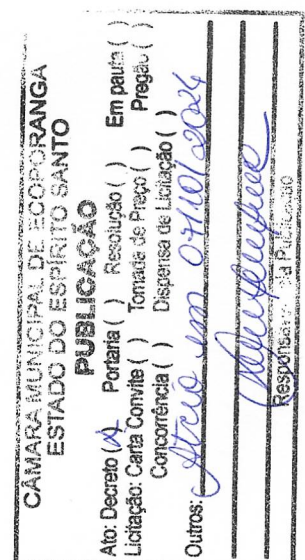 CÂMARA MUNICIPAL DE ECOPORANGA
ESTADO DO ESPÍRITO SANTO
PUBLICAÇÃO
Ato: Decreto (x) Portaria ( ) Resolução ( ) Em pauta ( )
Licitação: Carta Convite ( ) Tomada de Preço ( ) Pregão ( )
Concorrência ( ) Dispensa de Licitação ( )
Outros: Atrio em 04/01/2024
Responsável pela Publicação